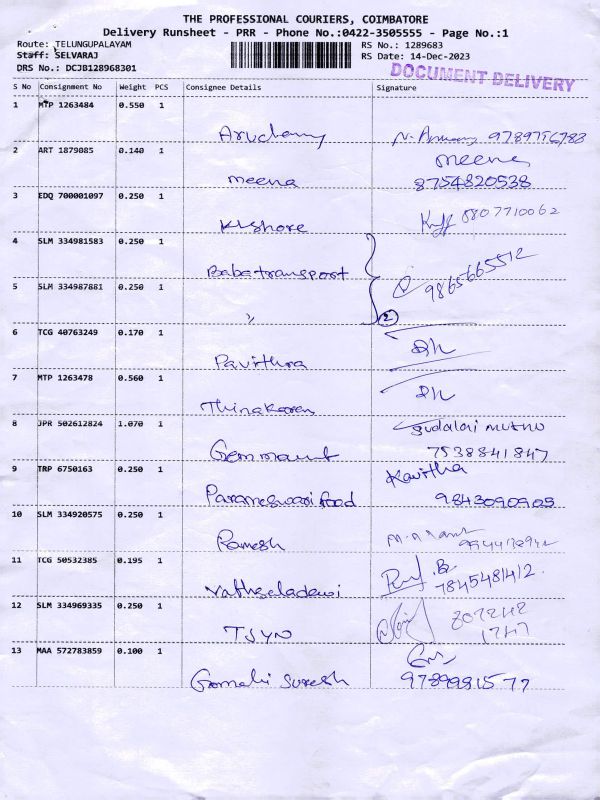 THE PROFESSIONAL COURIERS, COIMBATORE
Delivery Runsheet - PRR - Phone No.:0422-3505555 - Page No.:1
Route: TELUNGUPALAYAM
RS No.: 1289683
Staff: SELVARAJ
RS Date: 14-Dec-2023
DRS No.: DCJB128968301
DOCUMENT DELIVERY
S No Consignment No Weight PCS Consignee Details Signature
1 MTP 1263484 0.550 1
9789756783
2 ART 1879085 0.140 1
meena
meena 8754820538
3 EDQ 700001097 0.250 1
Kishore
4 SLM 334981583 0.250 1
Baba transport 9865665512
5 SLM 334987881 0.250 1
" 2
6 TCG 40763249 0.170 1
Pavithra
7 MTP 1263478 0.560 1
Thinakaran
8 JPR 502612824 1.070 1
Sudalai muthu
7538841847
9 TRP 6750163 0.250 1
Kavitha
Parameswari food 9843090905
10 SLM 334920575 0.250 1
Ramesh
11 TCG 50532385 0.195 1
Vathsaladevi 7845481412
12 SLM 334969335 0.250 1
TSYN
13 MAA 572783859 0.100 1
Suresh 9789981577